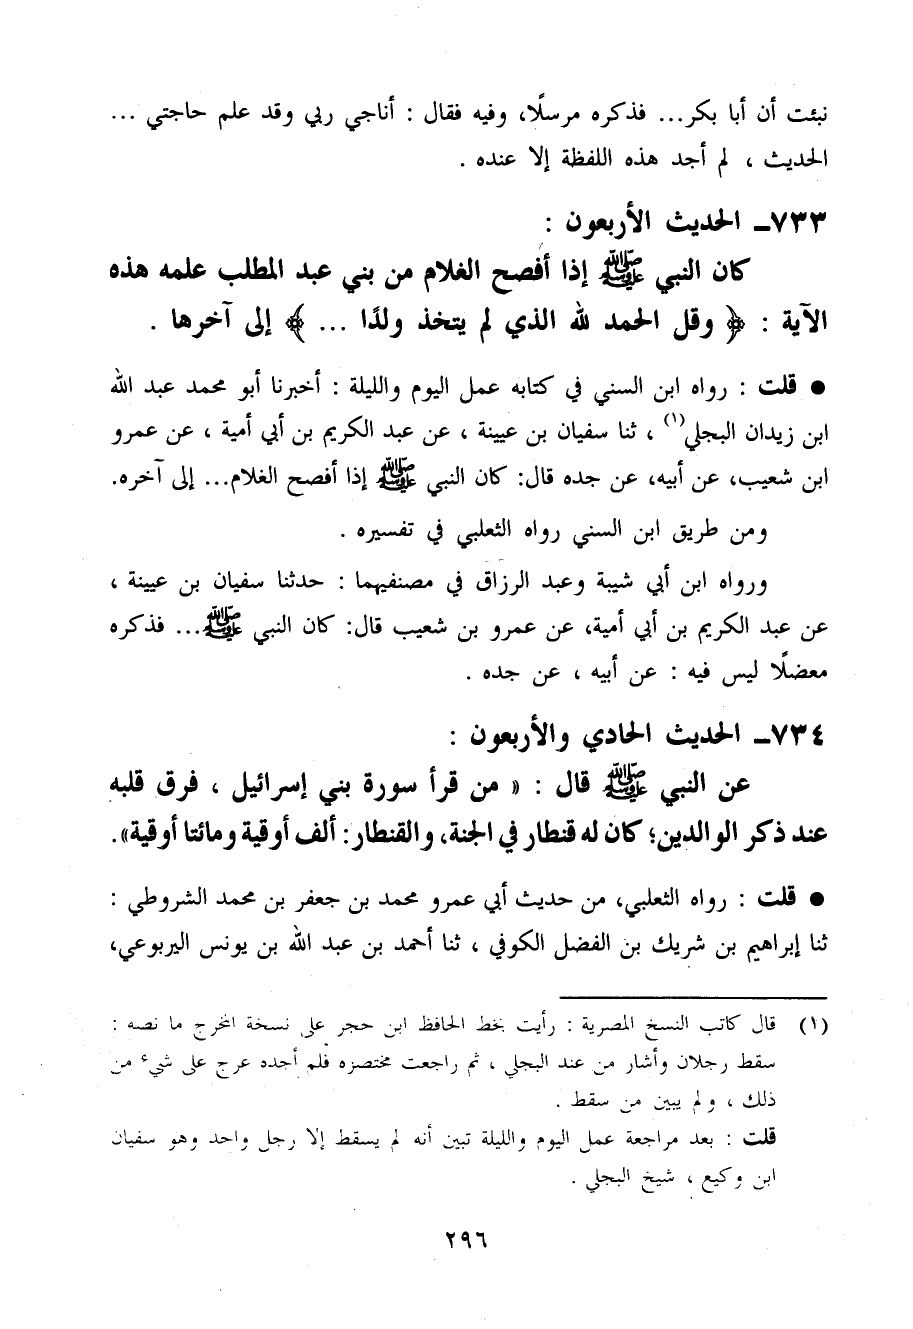 نبئت أن أبا بكر... فذكره مرسلًا، وفيه فقال : أناجي ربي وقد علم حاجتي ...
الحديث ، لم أجد هذه اللفظة إلا عنده .
٧٣٣ـ الحديث الأربعون :
كان النبي ﷺ إذا أفصح الغلام من بني عبد المطلب علمه هذه
الآية : ﴿ وقل الحمد لله الذي لم يتخذ ولدًا ... ﴾ إلى آخرها .
● قلت : رواه ابن السني في كتابه عمل اليوم والليلة : أخبرنا أبو محمد عبد الله
ابن زيدان البجلي(١) ، ثنا سفيان بن عيينة ، عن عبد الكريم بن أبي أمية ، عن عمرو
ابن شعيب، عن أبيه، عن جده قال: كان النبي ﷺ إذا أفصح الغلام... إلى آخره.
ومن طريق ابن السني رواه الثعلبي في تفسيره .
ورواه ابن أبي شيبة وعبد الرزاق في مصنفيهما : حدثنا سفيان بن عيينة ،
عن عبد الكريم بن أبي أمية، عن عمرو بن شعيب قال: كان النبي ﷺ... فذكره
معضلًا ليس فيه : عن أبيه ، عن جده .
٧٣٤ـ الحديث الحادي والأربعون :
عن النبي ﷺ قال : « من قرأ سورة بني إسرائيل ، فرق قلبه
عند ذكر الوالدين؛ كان له قنطار في الجنة، والقنطار: ألف أوقية ومائتا أوقية».
● قلت : رواه الثعلبي، من حديث أبي عمرو محمد بن جعفر بن محمد الشروطي :
ثنا إبراهيم بن شريك بن الفضل الكوفي ، ثنا أحمد بن عبد الله بن يونس اليربوعي،
(١) قال كاتب النسخ المصرية : رأيت بخط الحافظ ابن حجر على نسخة المخرج ما نصه :
سقط رجلان وأشار من عند البجلي ، ثم راجعت مختصره فلم أجده عرج على شيء من
ذلك ، ولم يبين من سقط .
قلت : بعد مراجعة عمل اليوم والليلة تبين أنه لم يسقط إلا رجل واحد وهو سفيان
ابن وكيع ، شيخ البجلي .
٢٩٦